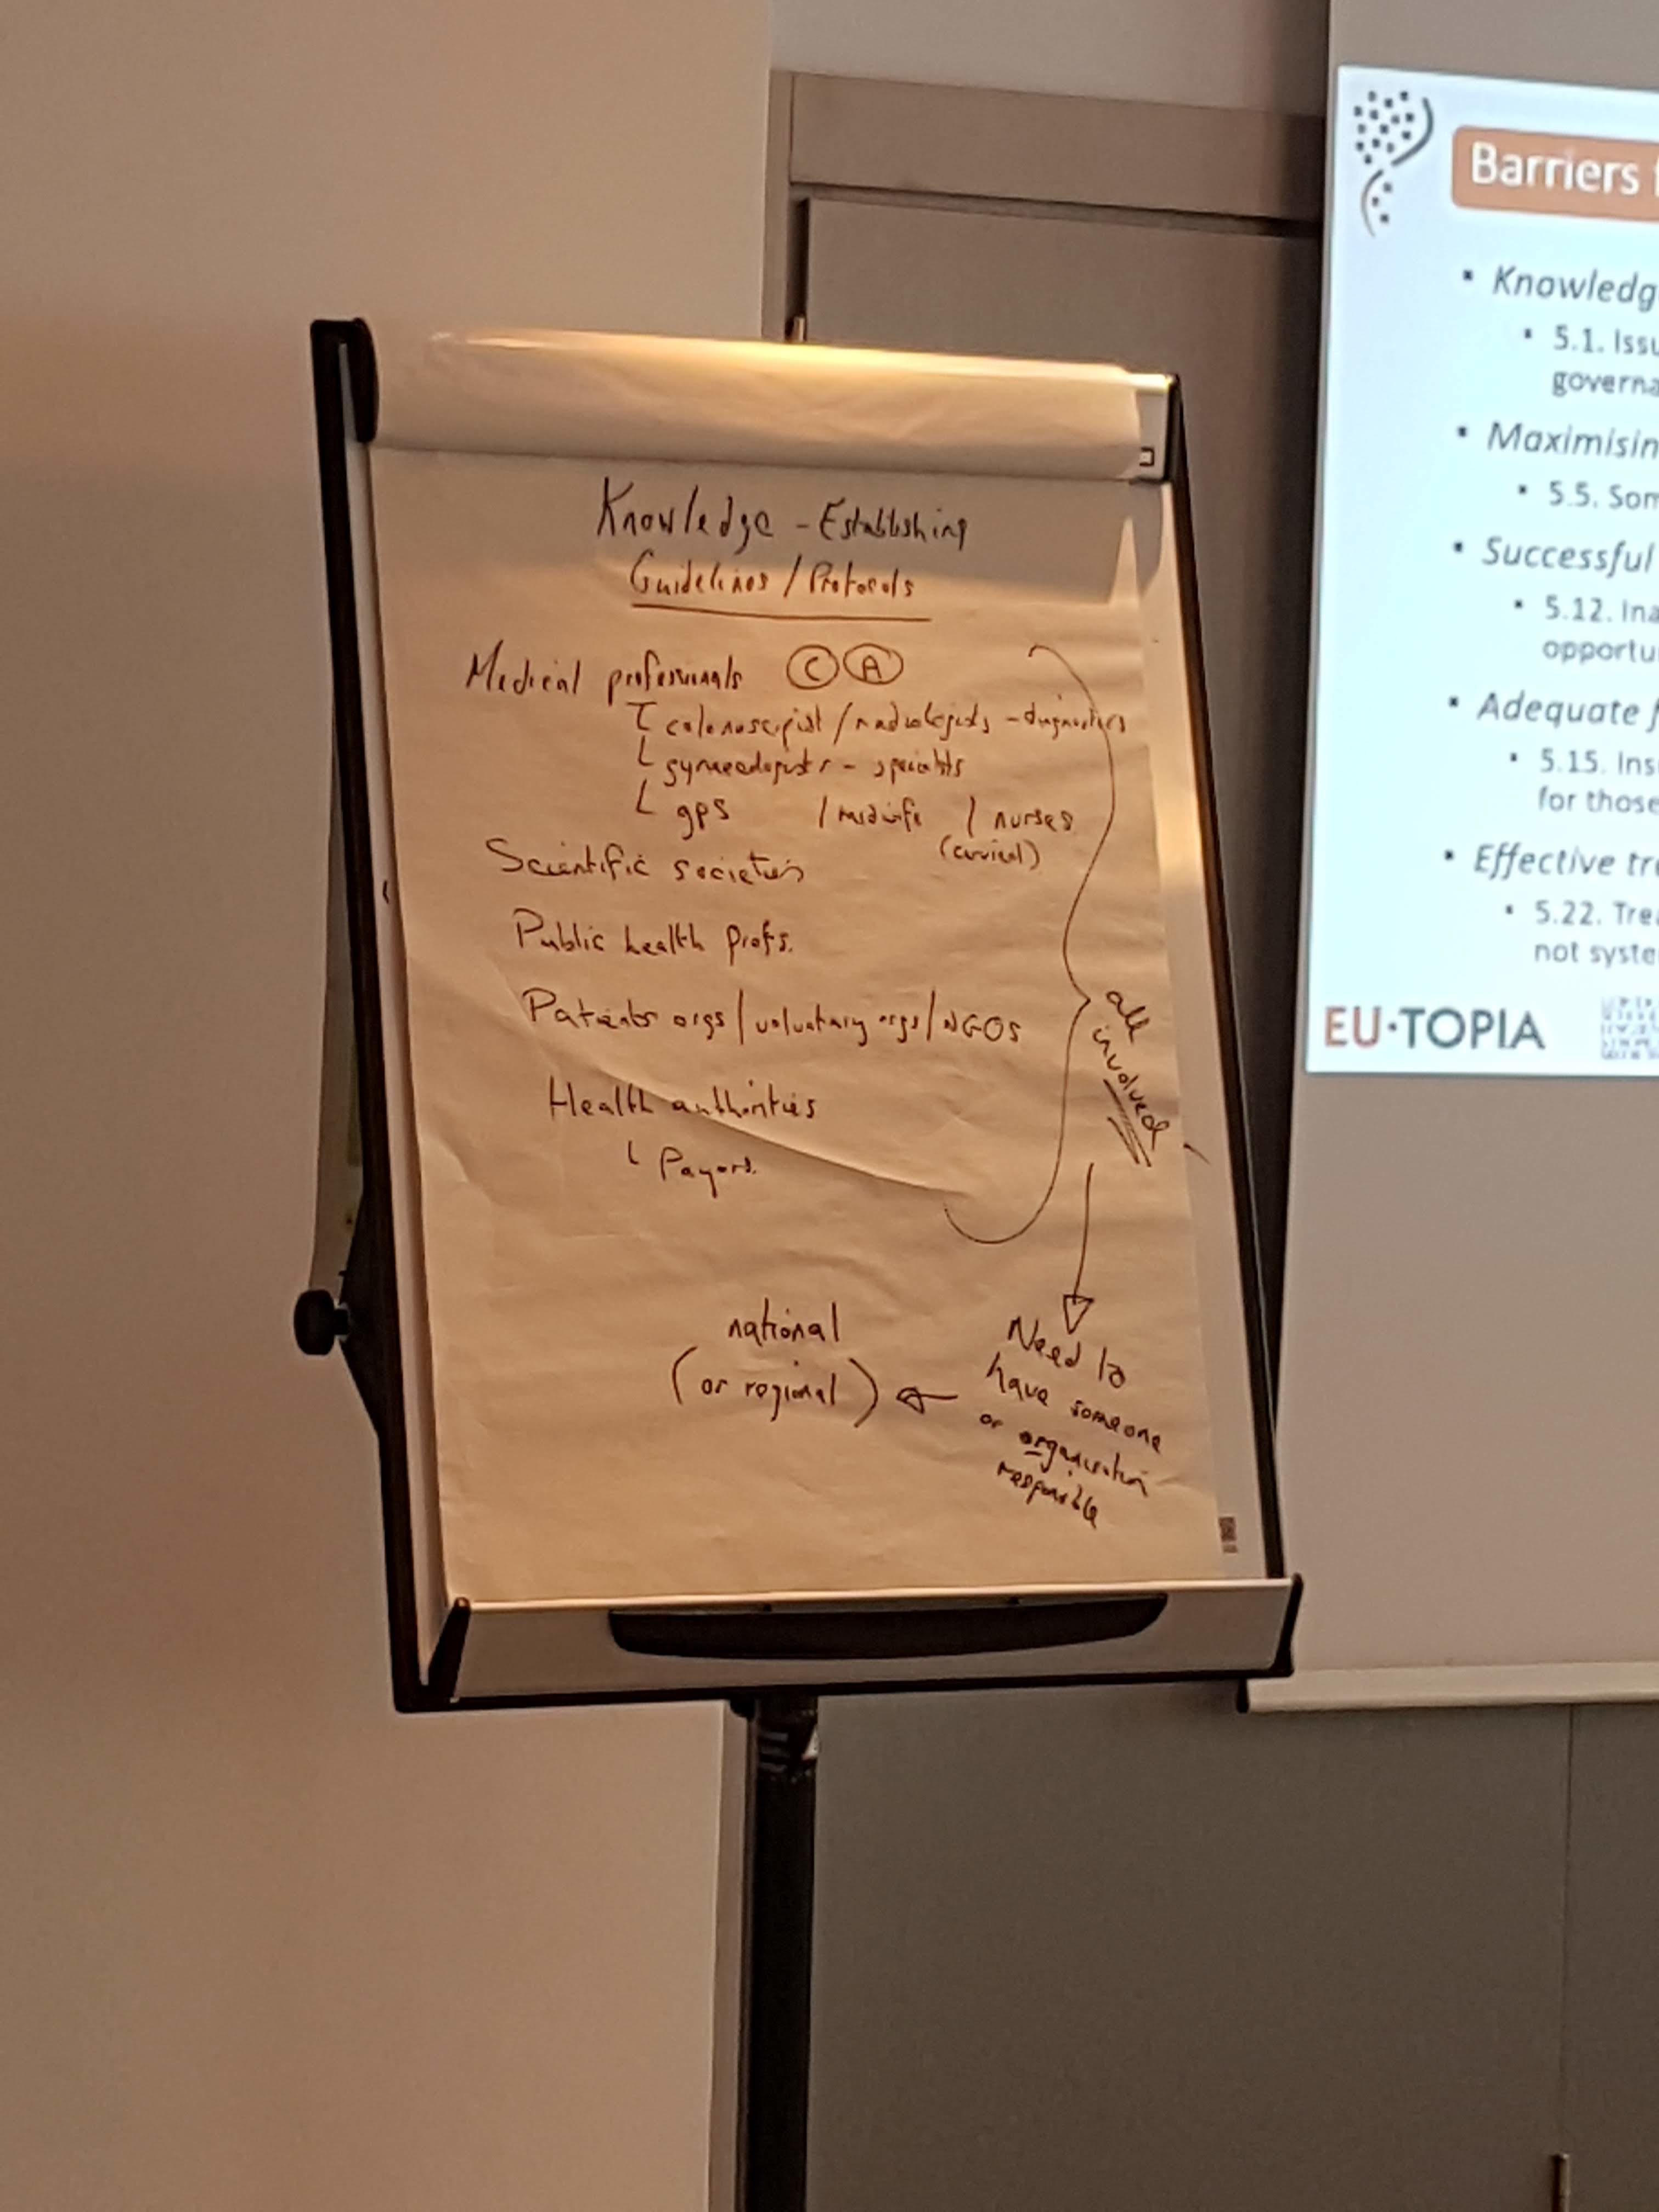 Knowledge - Establishing
Guidelines / Protocols
Medical professionals C A
colonoscopist / radiologists - diagnostics
gynaecologists - specialists
gps / midwife / nurses
(cervical)
Scientific societies
Public health profs.
Patients orgs / voluntary orgs / NGOs
Health authorities
Payors.
all
involved
Need to
have someone
or organisation
responsible
national
(or regional)
Barriers f
Knowledg
5.1. Issu
governa
Maximisin
5.5. Som
Successful
5.12. Ina
opportu
Adequate f
5.15. Ins
for those
Effective tre
5.22. Trea
not syste
EU·TOPIA